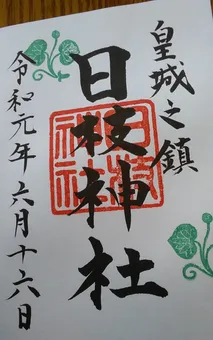 皇城之鎮
日枝神社
令和元年六月十六日
日枝神社